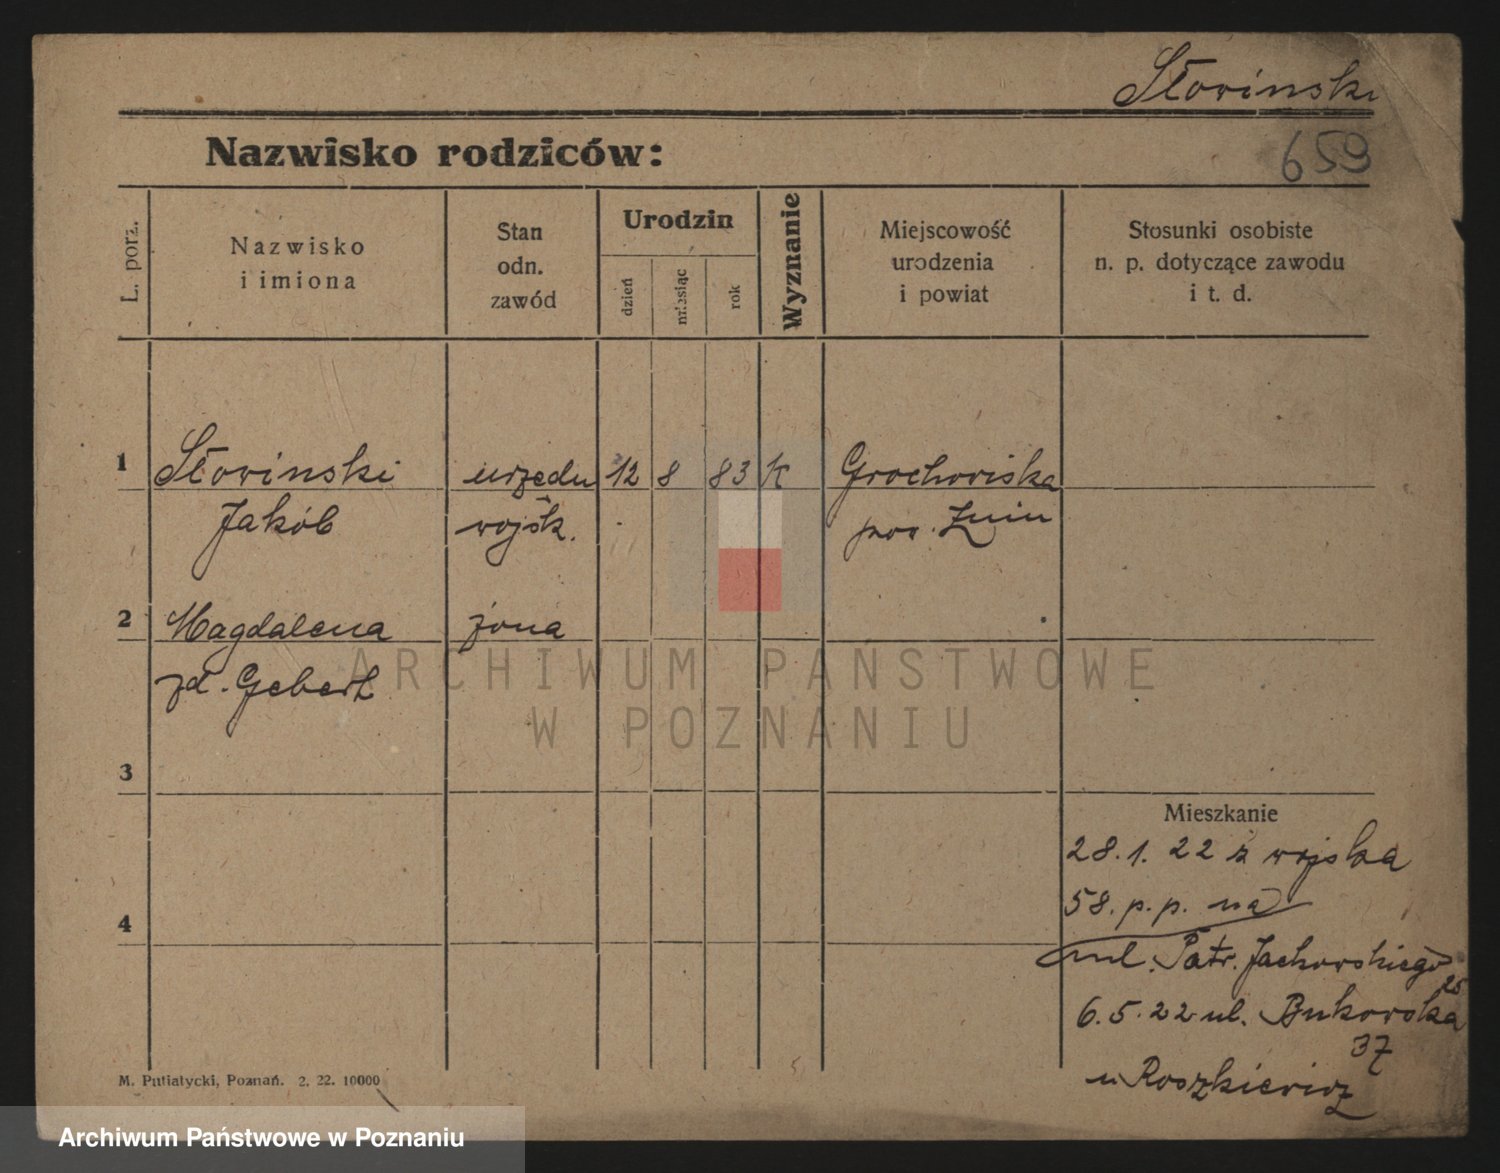 Słowinski
Nazwisko rodziców:
659
L. porz.
Nazwisko
i imiona
Stan
odn.
zawód
Urodzin
dzień
miesiąc
rok
Wyznanie
Miejscowość
urodzenia
i powiat
Stosunki osobiste
n. p. dotyczące zawodu
i t. d.
1 Słowinski urzędn 12 8 83 K Grochowiska
Jakób wojsk. pow. Żnin
2 Magdalena żona
zd. Gebert
ARCHIWUM PAŃSTWOWE
W POZNANIU
3
Mieszkanie
28.1.22 z wojska
58. p.p. na
4
ul. Patr. Jackowskiego
25
6.5.22 ul. Bukowska
37
u Roszkiewicz
M. Putiatycki, Poznań. 2. 22. 10000
Archiwum Państwowe w Poznaniu